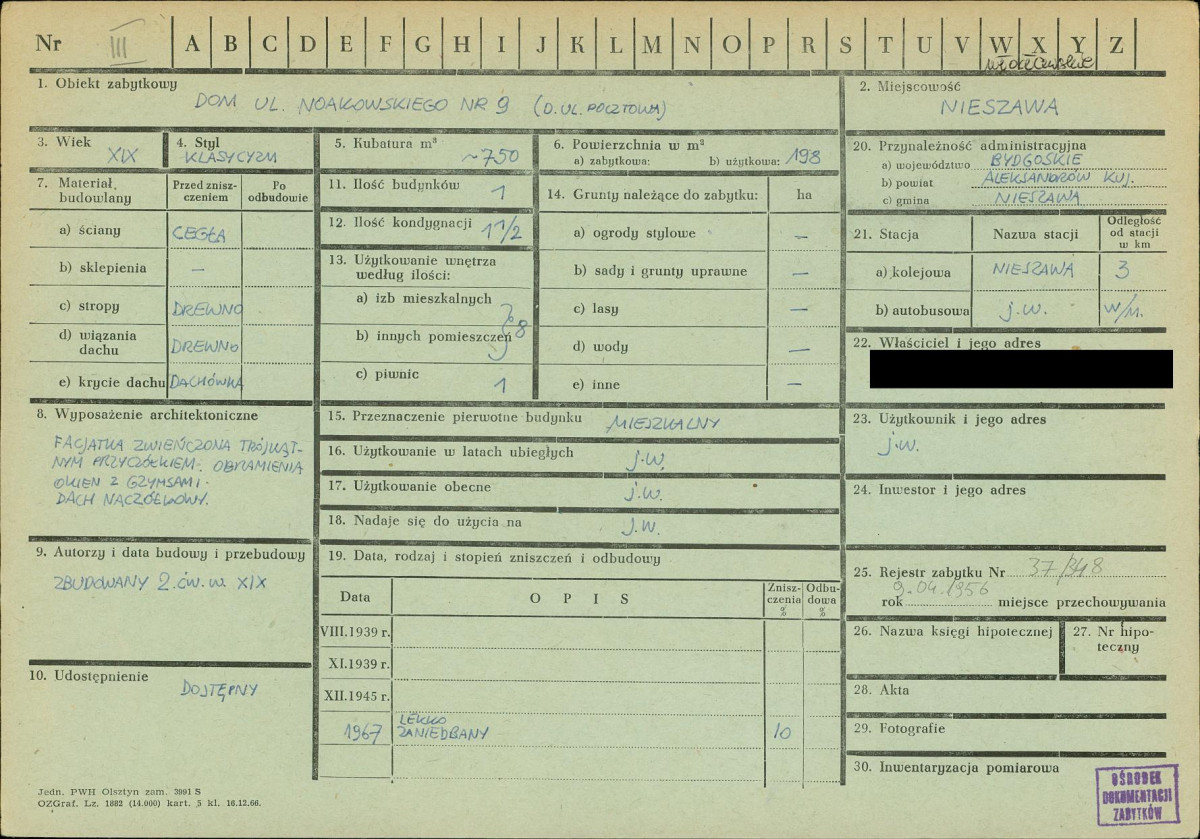 Nr III A B C D E F G H I J K L M N O P R S T U V W X Y Z
włocławskie
1. Obiekt zabytkowy
DOM UL. NOAKOWSKIEGO NR 9 (D. UL. POCZTOWA)
2. Miejscowość
NIESZAWA
3. Wiek
XIX
4. Styl
KLASYCYZM
5. Kubatura m³
~750
6. Powierzchnia w m²
a) zabytkowa: b) użytkowa: 198
20. Przynależność administracyjna
a) województwo BYDGOSKIE
b) powiat ALEKSANDRÓW KUJ.
c) gmina NIESZAWA
7. Materiał budowlany
Przed zniszczeniem
Po odbudowie
a) ściany CEGŁA
b) sklepienia —
c) stropy DREWNO
d) wiązania dachu DREWNO
e) krycie dachu DACHÓWKA
11. Ilość budynków
1
12. Ilość kondygnacji 1 1/2
13. Użytkowanie wnętrza
według ilości:
a) izb mieszkalnych
b) innych pomieszczeń
8
c) piwnic 1
14. Grunty należące do zabytku: ha
a) ogrody stylowe —
b) sady i grunty uprawne —
c) lasy —
d) wody —
e) inne —
21. Stacja
Nazwa stacji
Odległość od stacji w km
a) kolejowa NIESZAWA 3
b) autobusowa j.w. w/m.
22. Właściciel i jego adres
8. Wyposażenie architektoniczne
FACJATKA ZWIEŃCZONA TRÓJKĄT-
NYM PRZYCZÓŁKIEM. OBRAMIENIA
OKIEN Z GZYMSAMI.
DACH NACZÓŁKOWY.
15. Przeznaczenie pierwotne budynku MIESZKALNY
16. Użytkowanie w latach ubiegłych j.w.
17. Użytkowanie obecne j.w.
18. Nadaje się do użycia na j.w.
23. Użytkownik i jego adres
j.w.
24. Inwestor i jego adres
9. Autorzy i data budowy i przebudowy
ZBUDOWANY 2. ĆW. W. XIX
19. Data, rodzaj i stopień zniszczeń i odbudowy
Data
OPIS
Zniszczenia %
Odbudowa %
VIII.1939 r.
XI.1939 r.
XII.1945 r.
1967
LEKKO
ZANIEDBANY 10
25. Rejestr zabytku Nr 37/348
9.04.1956
rok miejsce przechowywania
26. Nazwa księgi hipotecznej
27. Nr hipo-
teczny
10. Udostępnienie
DOSTĘPNY
28. Akta
29. Fotografie
30. Inwentaryzacja pomiarowa
Jedn. PWH Olsztyn zam. 3991 S
OZGraf. Lz. 1882 (14.000) kart. 5 kl. 16.12.66.
OŚRODEK
DOKUMENTACJI
ZABYTKÓW